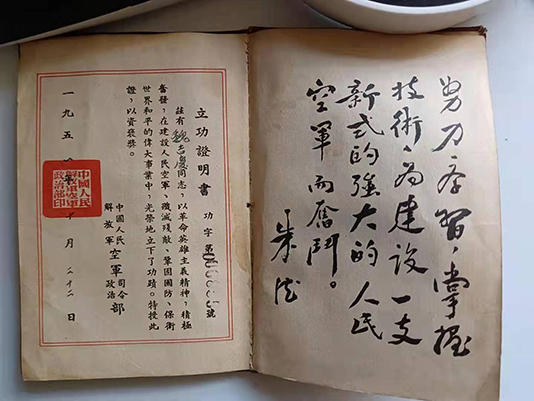 努力学習,掌握
技術,為建設一支
新式的強大的人民
空軍而奮鬥。
朱德
立功證明書 功字第號
茲有魏慶同志,以革命英雄主義精神,積極
奮發,在建設人民空軍,殲滅殘敵、鞏固國防、保衛
世界和平的偉大事業中,光榮地立下了功蹟。特授此
證,以資褒獎。
中國人民
解放軍
空軍
司令
政治
部
一九五 年十月二十二日
中國人民
解放軍空軍
政治部印